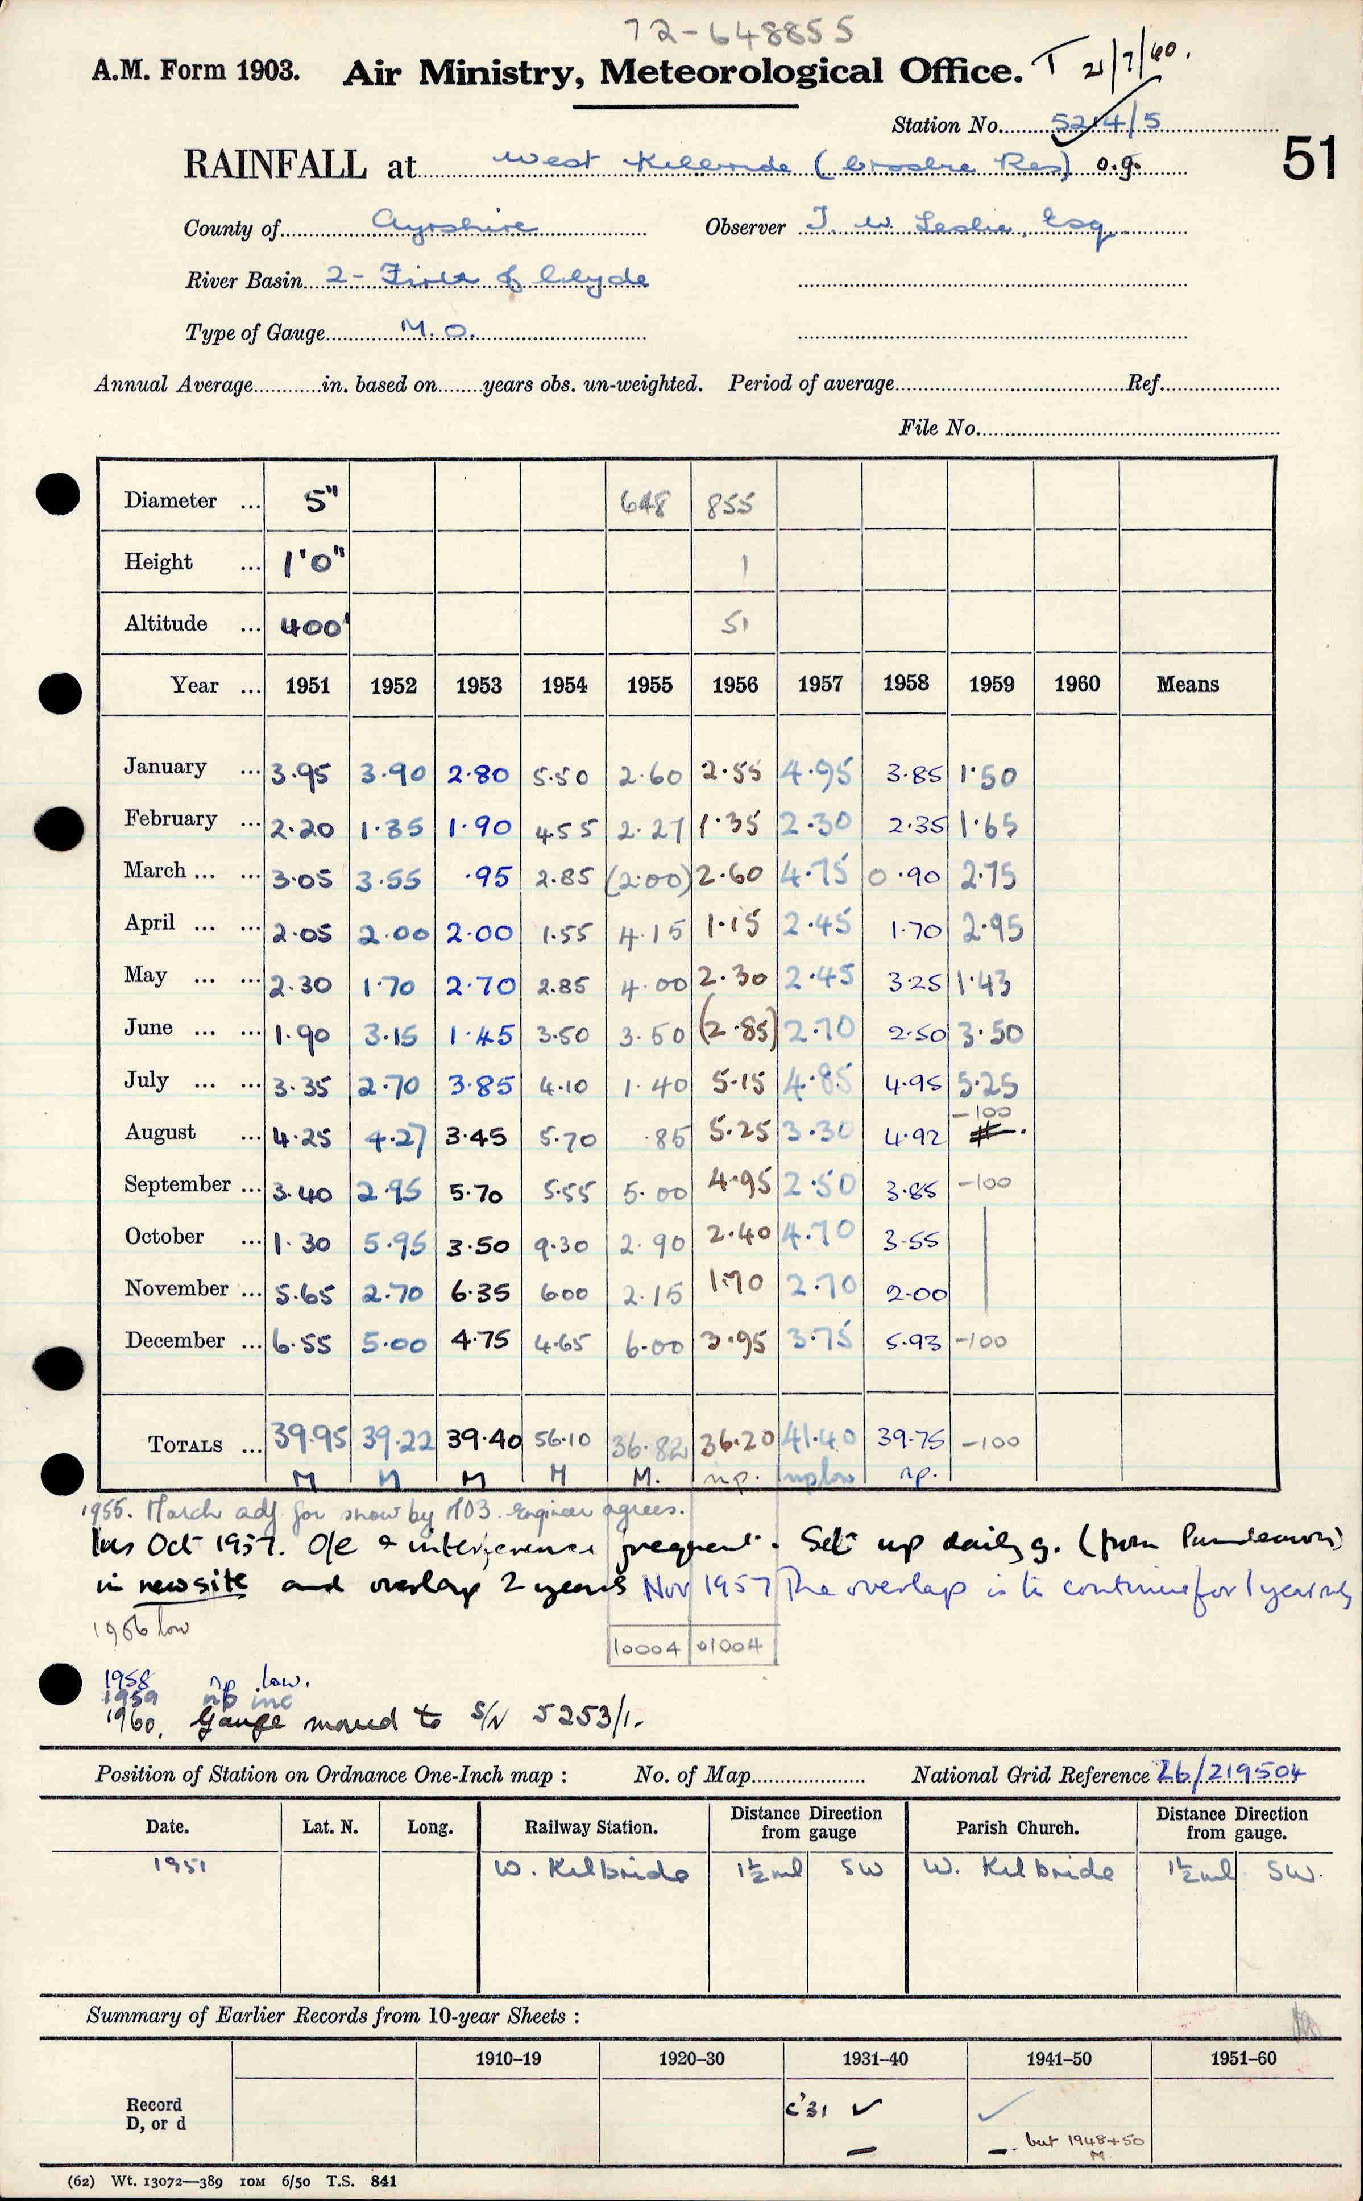 72-648855
A.M. Form 1903. Air Ministry, Meteorological Office. T 21/7/60.
Station No. 5214/5
RAINFALL at West Kilbride (Crosbie Res) o.g. 51
County of Ayrshire Observer J. W. Leslie, Esq
River Basin 2 - Firth of Clyde
Type of Gauge M.O.
Annual Average in. based on years obs. un-weighted. Period of average Ref.
File No.
Diameter ... 5" 648 855
Height ... 1'0" 1
Altitude ... 400' 51
Year ... 1951 1952 1953 1954 1955 1956 1957 1958 1959 1960 Means
January ... 3.95 3.90 2.80 5.50 2.60 2.55 4.95 3.85 1.50
February ... 2.20 1.35 1.90 4.55 2.27 1.35 2.30 2.35 1.65
March ... ... 3.05 3.55 .95 2.85 (2.00) 2.60 4.75 0.90 2.75
April ... ... 2.05 2.00 2.00 1.55 4.15 1.15 2.45 1.70 2.95
May ... ... 2.30 1.70 2.70 2.85 4.00 2.30 2.45 3.25 1.43
June ... ... 1.90 3.15 1.45 3.50 3.50 (2.85) 2.70 2.50 3.50
July ... ... 3.35 2.70 3.85 4.10 1.40 5.15 4.85 4.95 5.25
August ... 4.25 4.27 3.45 5.70 .85 5.25 3.30 4.92 -100
September ... 3.40 2.95 5.70 5.55 5.00 4.95 2.50 3.85 -100
October ... 1.30 5.95 3.50 9.30 2.90 2.40 4.70 3.55
November ... 5.65 2.70 6.35 6.00 2.15 1.70 2.70 2.00
December ... 6.55 5.00 4.75 4.65 6.00 3.95 3.75 5.93 -100
TOTALS ... 39.95 39.22 39.40 56.10 36.82 36.20 41.40 39.75 -100
M M M M M. np. np low np.
1955. March adj for snow by M03. Engineer agrees.
Ins Oct 1957. O/e & interference frequent. Set up daily g. (from )
in new site and overlap 2 years Nov 1957 The overlap is to continue for 1 year only
1956 low
10004 01004
1958 np low.
1959 np inc
1960. Gauge moved to S/N 5253/1.
Position of Station on Ordnance One-Inch map : No. of Map National Grid Reference 26/219504
Date. Lat. N. Long. Railway Station. Distance Direction from gauge Parish Church. Distance Direction from gauge.
1951 W. Kilbride 1½ ml SW W. Kilbride 1½ ml SW.
Summary of Earlier Records from 10-year Sheets :
1910–19 1920–30 1931–40 1941–50 1951–60
Record D, or d c'31 ✓ – ✓ – but 1948+50 M.
(62) Wt. 13072—389 10M 6/50 T.S. 841